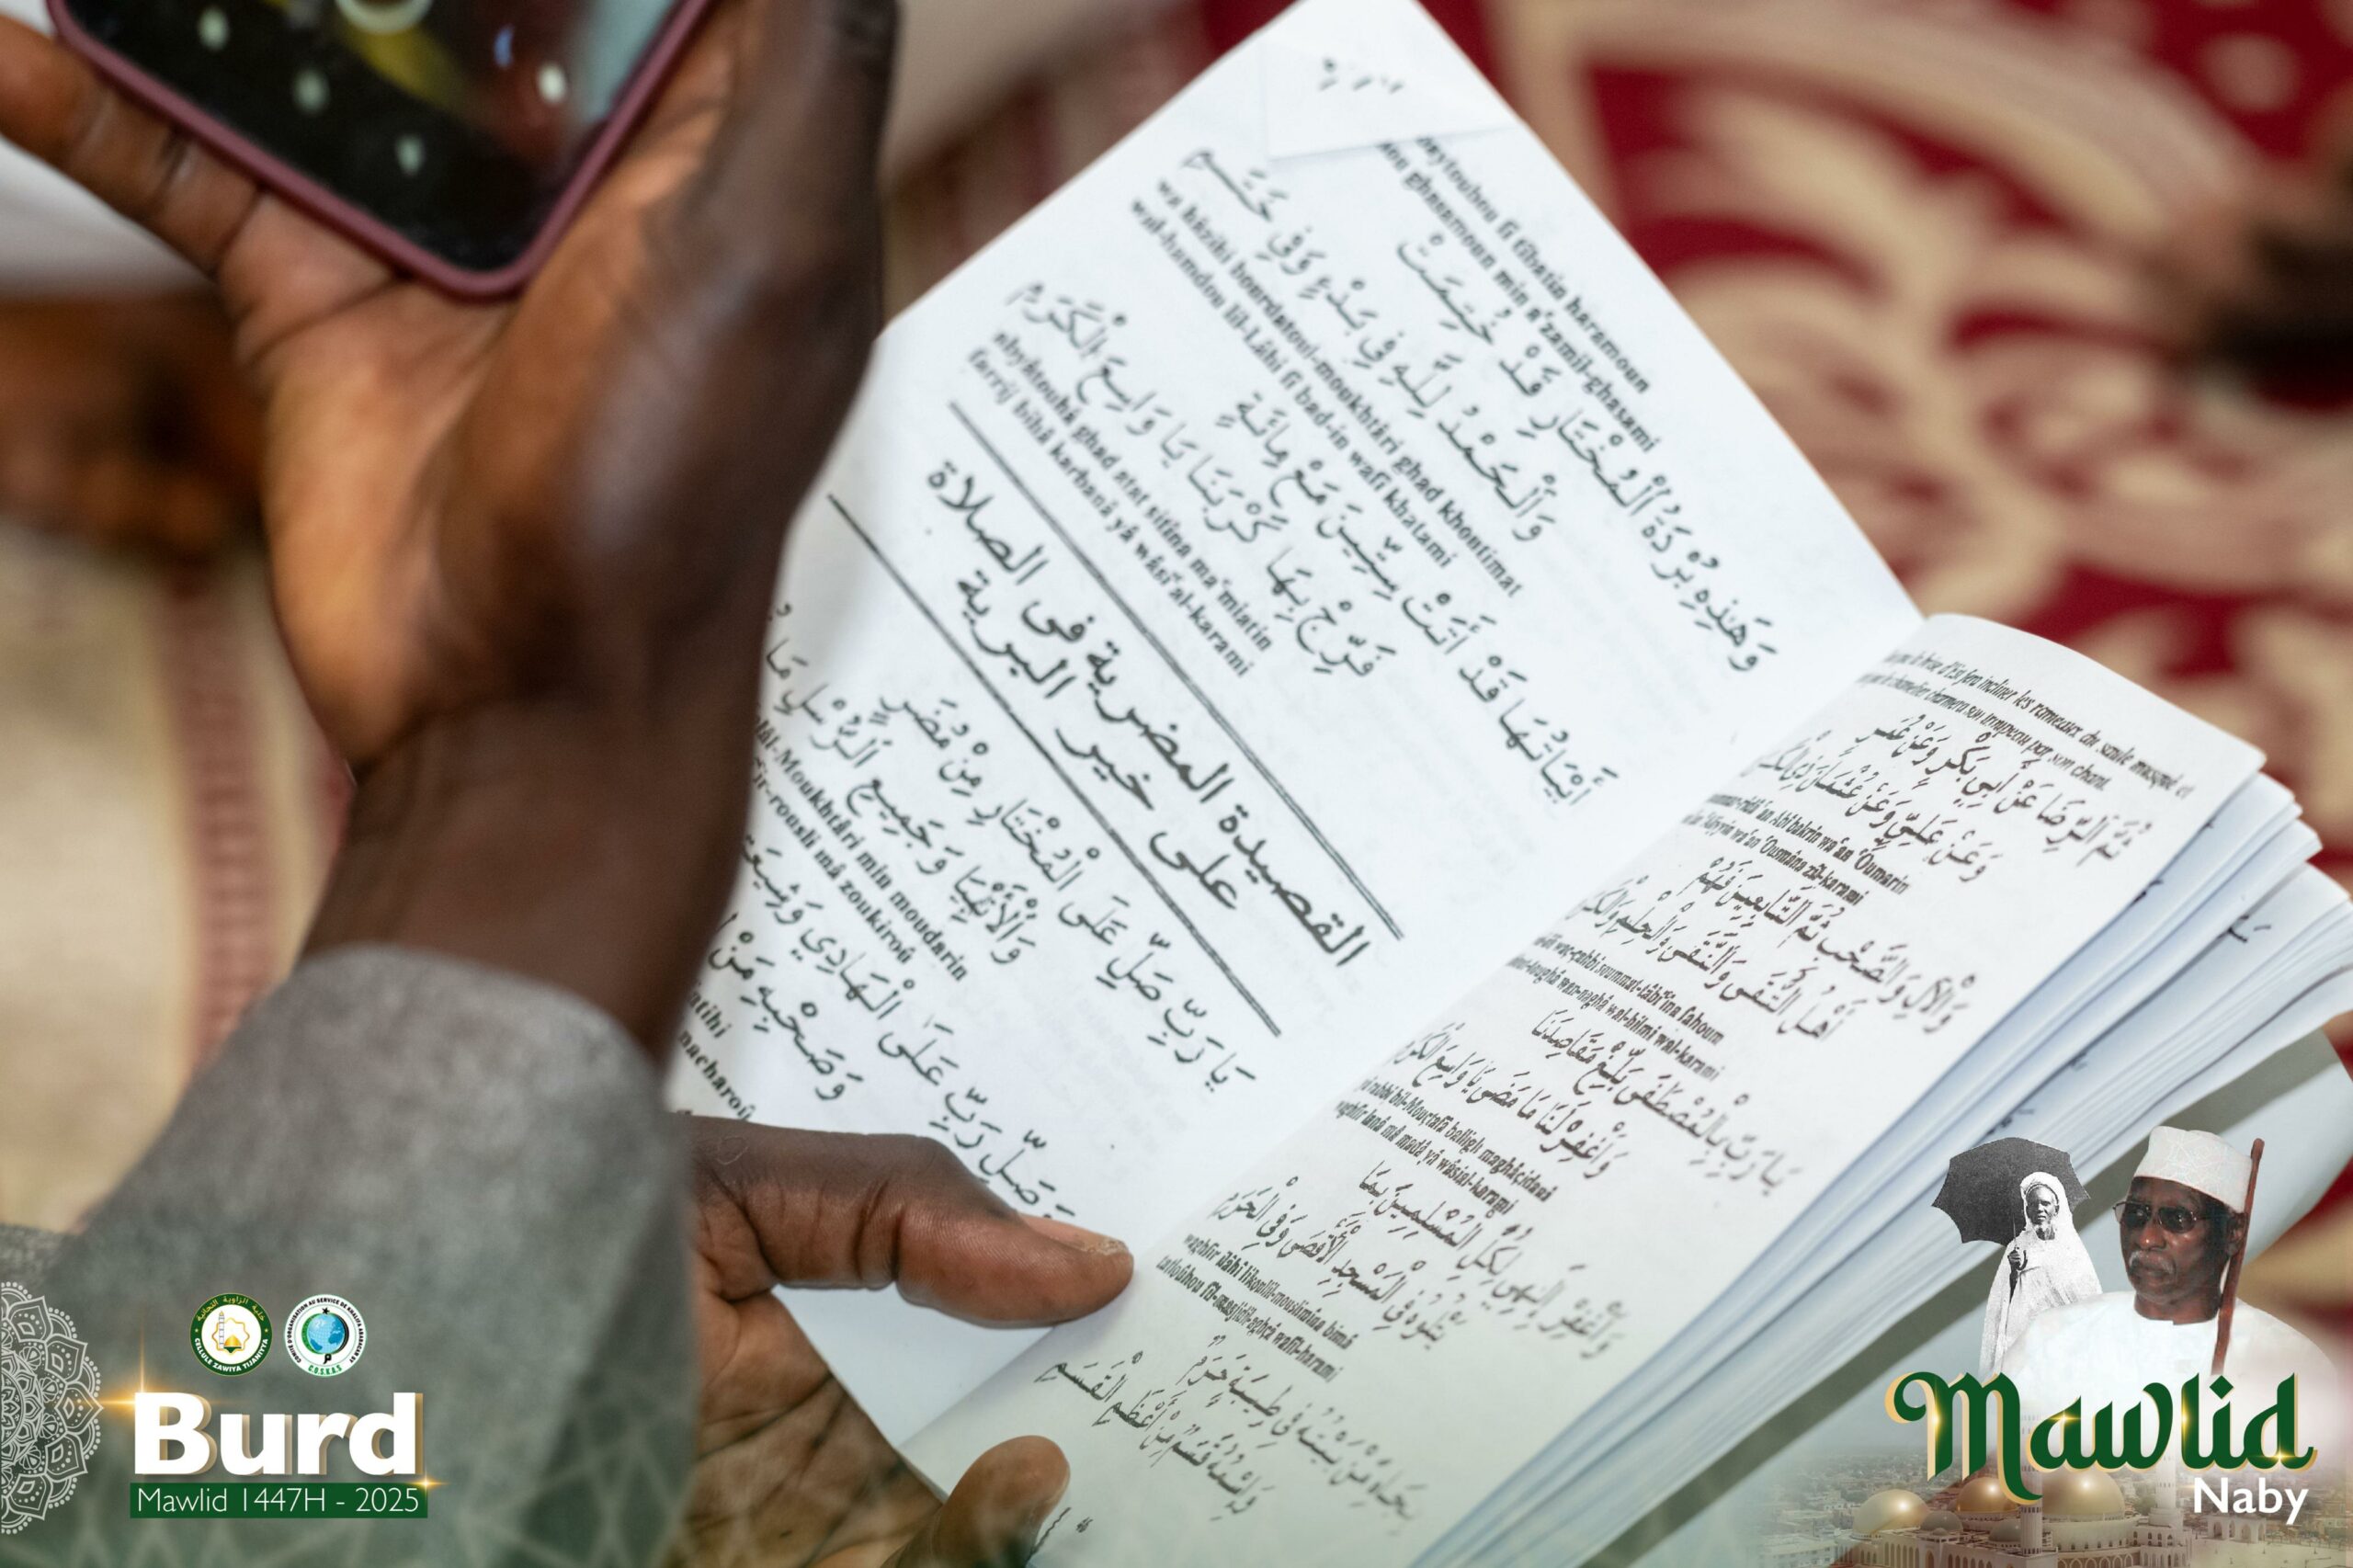 beytouhou fî tîbatin haramoun
min a'zamil-ghasami
وَهَذِهِ بُرْدَةُ الْمُخْتَارِ قَدْ خُتِمَتْ
وَالْحَمْدُ لِلَّهِ فِي بَدْءٍ وَفِي خَتَمِ
wa hâzihi bourdatoul-moukhtâri ghad khoutimat
wal-hamdou lil-Lâhi fî bad-in wafî khatami
أَبْيَاتُهَا قَدْ أَتَتْ سِتِّينَ مَعْ مِائَةٍ
فَرِّجْ بِهَا كَرْبَنَا يَا وَاسِعَ الْكَرَمِ
abyâtouhâ ghad atat sitîna ma'miatin
farrij bihâ karbanâ yâ wâsi'al-karami
القصيدة المضرية في الصلاة
على خير البرية
يَا رَبِّ صَلِّ عَلَى الْمُخْتَارِ مِنْ مُضَرٍ
وَالْأَنْبِيَا وَجَمِيعِ الرُّسْلِ مَا
alâl-Moukhtâri min moudarin
ir-rousli mâ zoukiroû
وَصَلِّ رَبِّ عَلَى الْهَادِي وَشِيعَتِهِ
وَصَحْبِهِ مَنْ
nacharoû
وَصَلِّ
d'Es fera incliner les rameaux du saule masqué et
le chamelier charmera son troupeau par son chant.
ثُمَّ الرِّضَا عَنْ أَبِي بَكْرٍ وَعَنْ عُمَرَ
وَعَنْ عَلِيٍّ وَعَنْ عُثْمَانَ ذِي الْكَرَمِ
oummar-ridâ 'an Abî bakrin wa'an 'Oumarin
'Aliyyin wa'an 'Oumâna zil-karami
وَالْآلِ وَالصَّحْبِ ثُمَّ التَّابِعِينَ فَهُمْ
أَهْلُ التُّقَى وَالنَّقَى وَالْحِلْمِ وَالْكَرَمِ
waç-çahbi soummat-tâbi'îna fahoum
wan-naghâ wal-hilmi wal-karami
يَا رَبِّ بِالْمُصْطَفَى بَلِّغْ مَقَاصِدَنَا
وَاغْفِرْ لَنَا مَا مَضَى يَا وَاسِعَ الْكَرَمِ
yâ rabbi bil-Mouçtafâ balligh maghâçidanâ
waghfir lanâ mâ madâ yâ wâsial-karami
وَاغْفِرْ إِلَهِي لِكُلِّ الْمُسْلِمِينَ بِمَا
يَتْلُوهُ فِي الْمَسْجِدِ الْأَقْصَى وَفِي الْحَرَمِ
waghfir ilâhî likoullil-mouslimîna bimâ
yatloûhou fil-masjidil-aghçâ wafil-harami
بِجَاهِ مَنْ بَيْتُهُ فِي طِيبَةٍ حَرَمٌ
وَاسْمُهُ قَسَمٌ مِنْ أَعْظَمِ الْقَسَمِ
CELLULE ZAWIYA TIJANIYYA
C.O.S.K.A.S
Burd
Mawlid 1447H - 2025
Mawlid
Naby